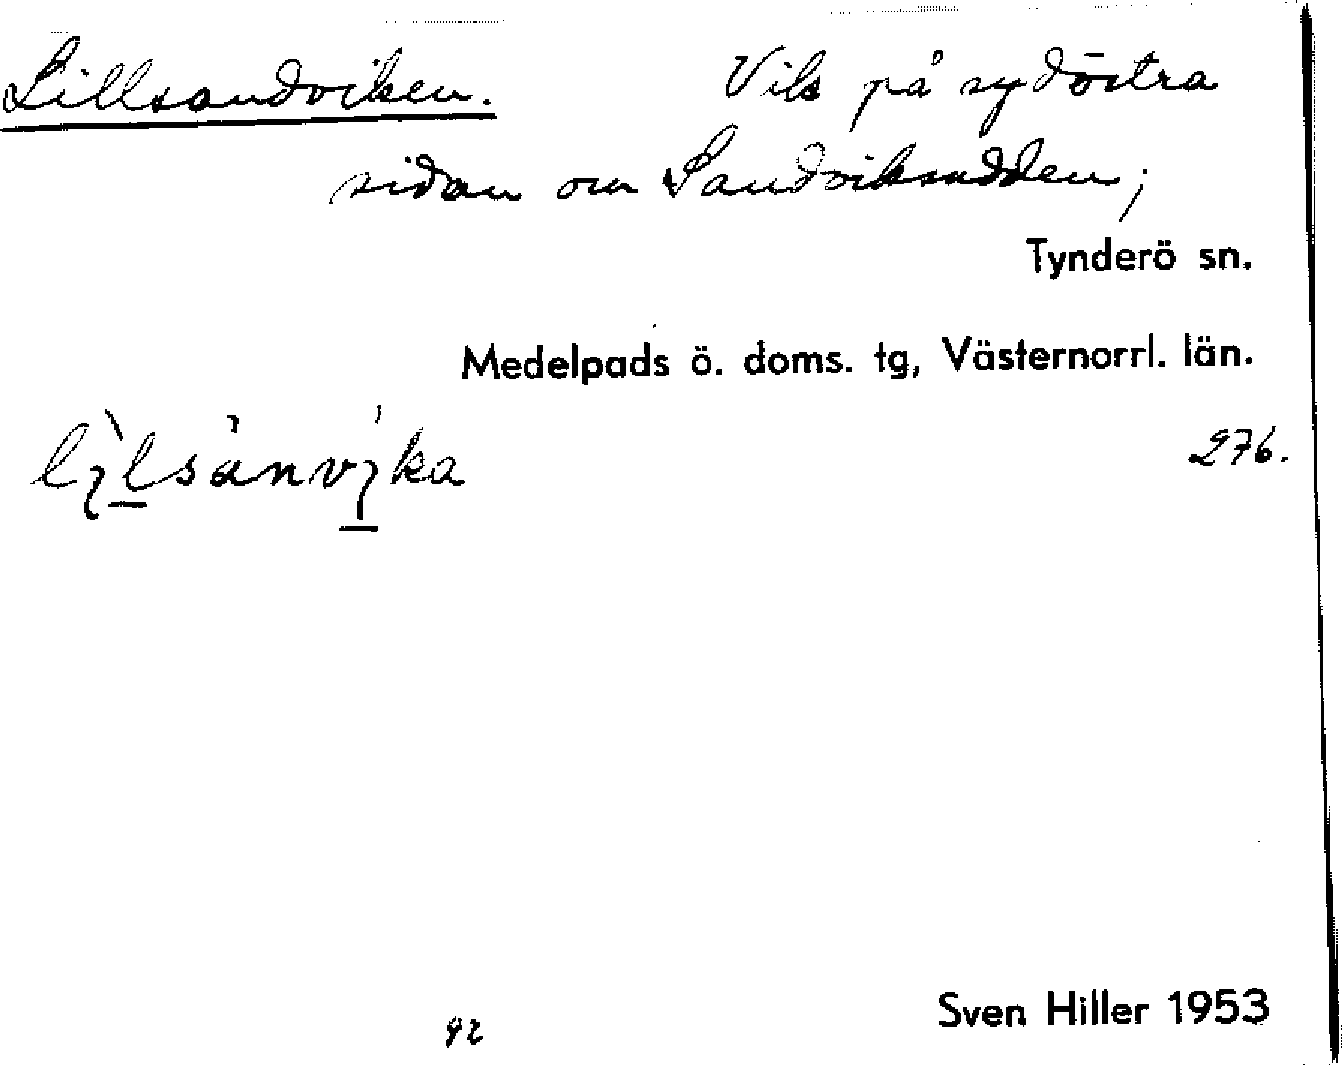 Lillsandviken. Vik på sydöstra
sidan om Sandviksudden;
Tynderö sn.
Medelpads ö. doms. tg, Västernorrl. län.
276.
Sven Hiller 1953